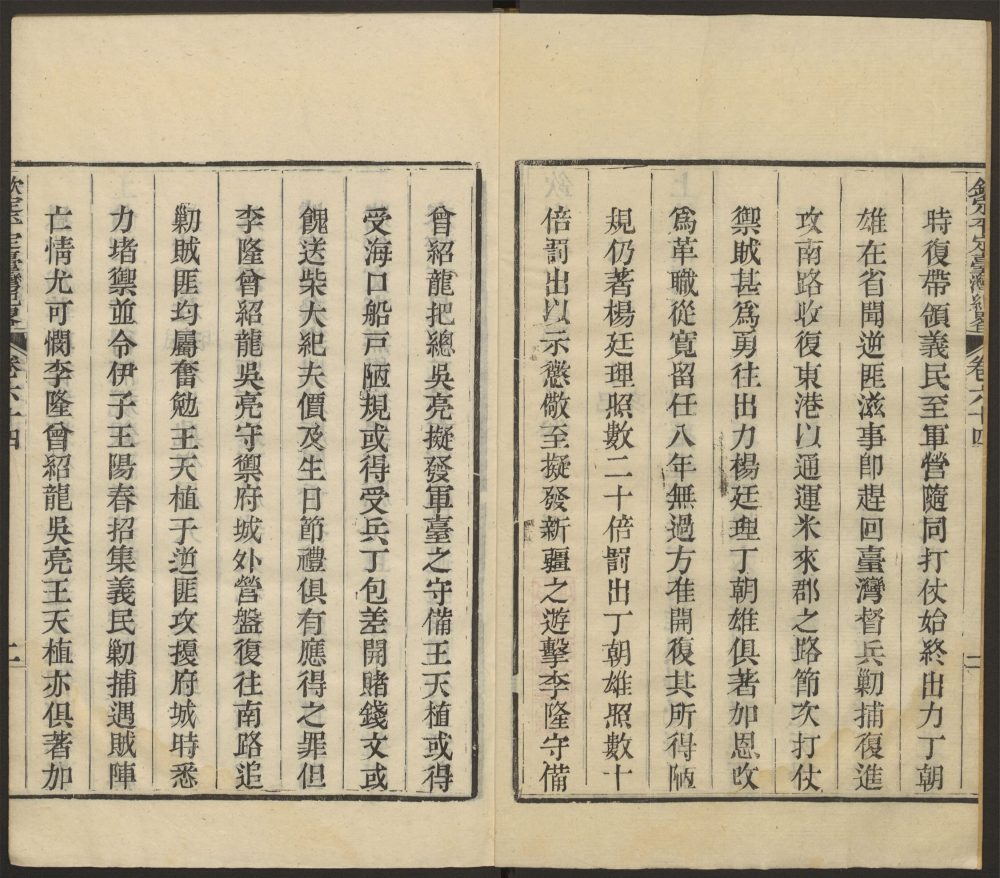 欽定平定臺灣紀畧 卷六十四
時復帶領義民至軍營隨同打仗始終出力丁朝
雄在省聞逆匪滋事卽趕回臺灣督兵勦捕復進
攻南路收復東港以通運米來郡之路節次打仗
禦賊甚爲勇往出力楊廷理丁朝雄俱著加恩改
爲革職從寬留任八年無過方准開復其所得陋
規仍著楊廷理照數二十倍罰出丁朝雄照數十
倍罰出以示懲儆至擬發新疆之遊擊李隆守備
曾紹龍把總吳亮擬發軍臺之守備王天植或得
受海口船戸陋規或得受兵丁包差開賭錢文或
餽送柴大紀夫價及生日節禮俱有應得之罪但
李隆曾紹龍吳亮守禦府城外營盤復往南路追
勦賊匪均屬奮勉王天植于逆匪攻擾府城時悉
力堵禦並令伊子王陽春招集義民勦捕遇賊陣
亡情尤可憫李隆曾紹龍吳亮王天植亦俱著加
欽定平定臺灣紀畧 卷六十四 二